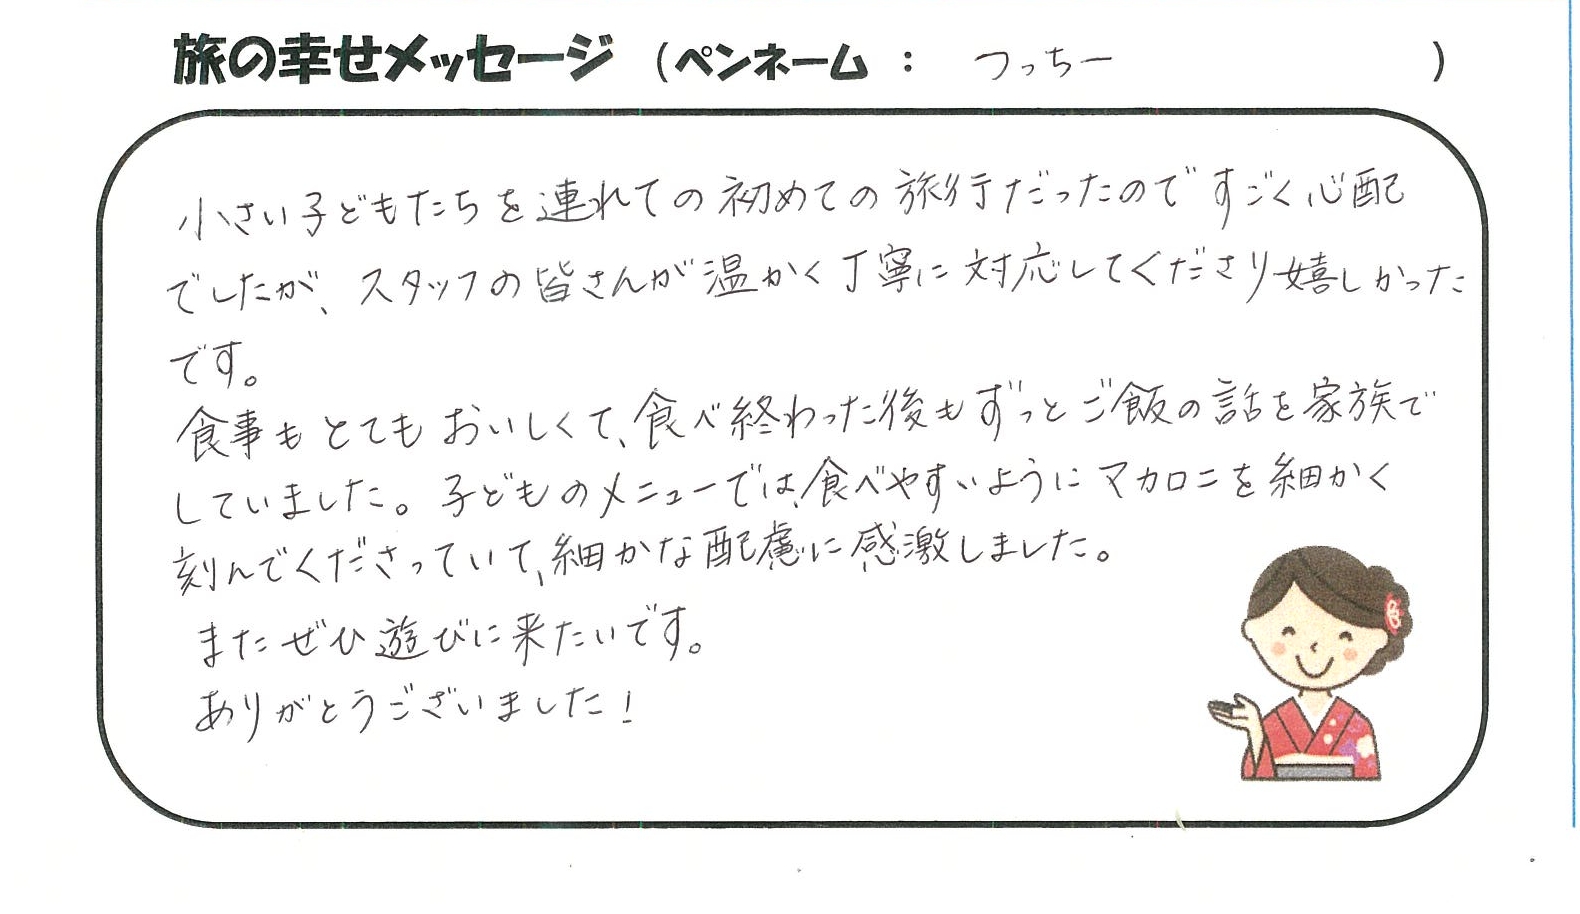 旅の幸せメッセージ (ペンネーム : つっちー )
小さい子どもたちを連れての初めての旅行だったのですごく心配
でしたが、スタッフの皆さんが温かく丁寧に対応してくださり嬉しかった
です。
食事もとてもおいしくて、食べ終わった後もずっとご飯の話を家族で
していました。子どものメニューでは、食べやすいようにマカロニを細かく
刻んでくださっていて、細かな配慮に感激しました。
またぜひ遊びに来たいです。
ありがとうございました!